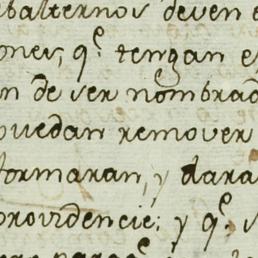 balternos deven e
ones, q.e tengan e
n de ser nombrad
puedan remover
formaran, y dara
providencie; y q.e